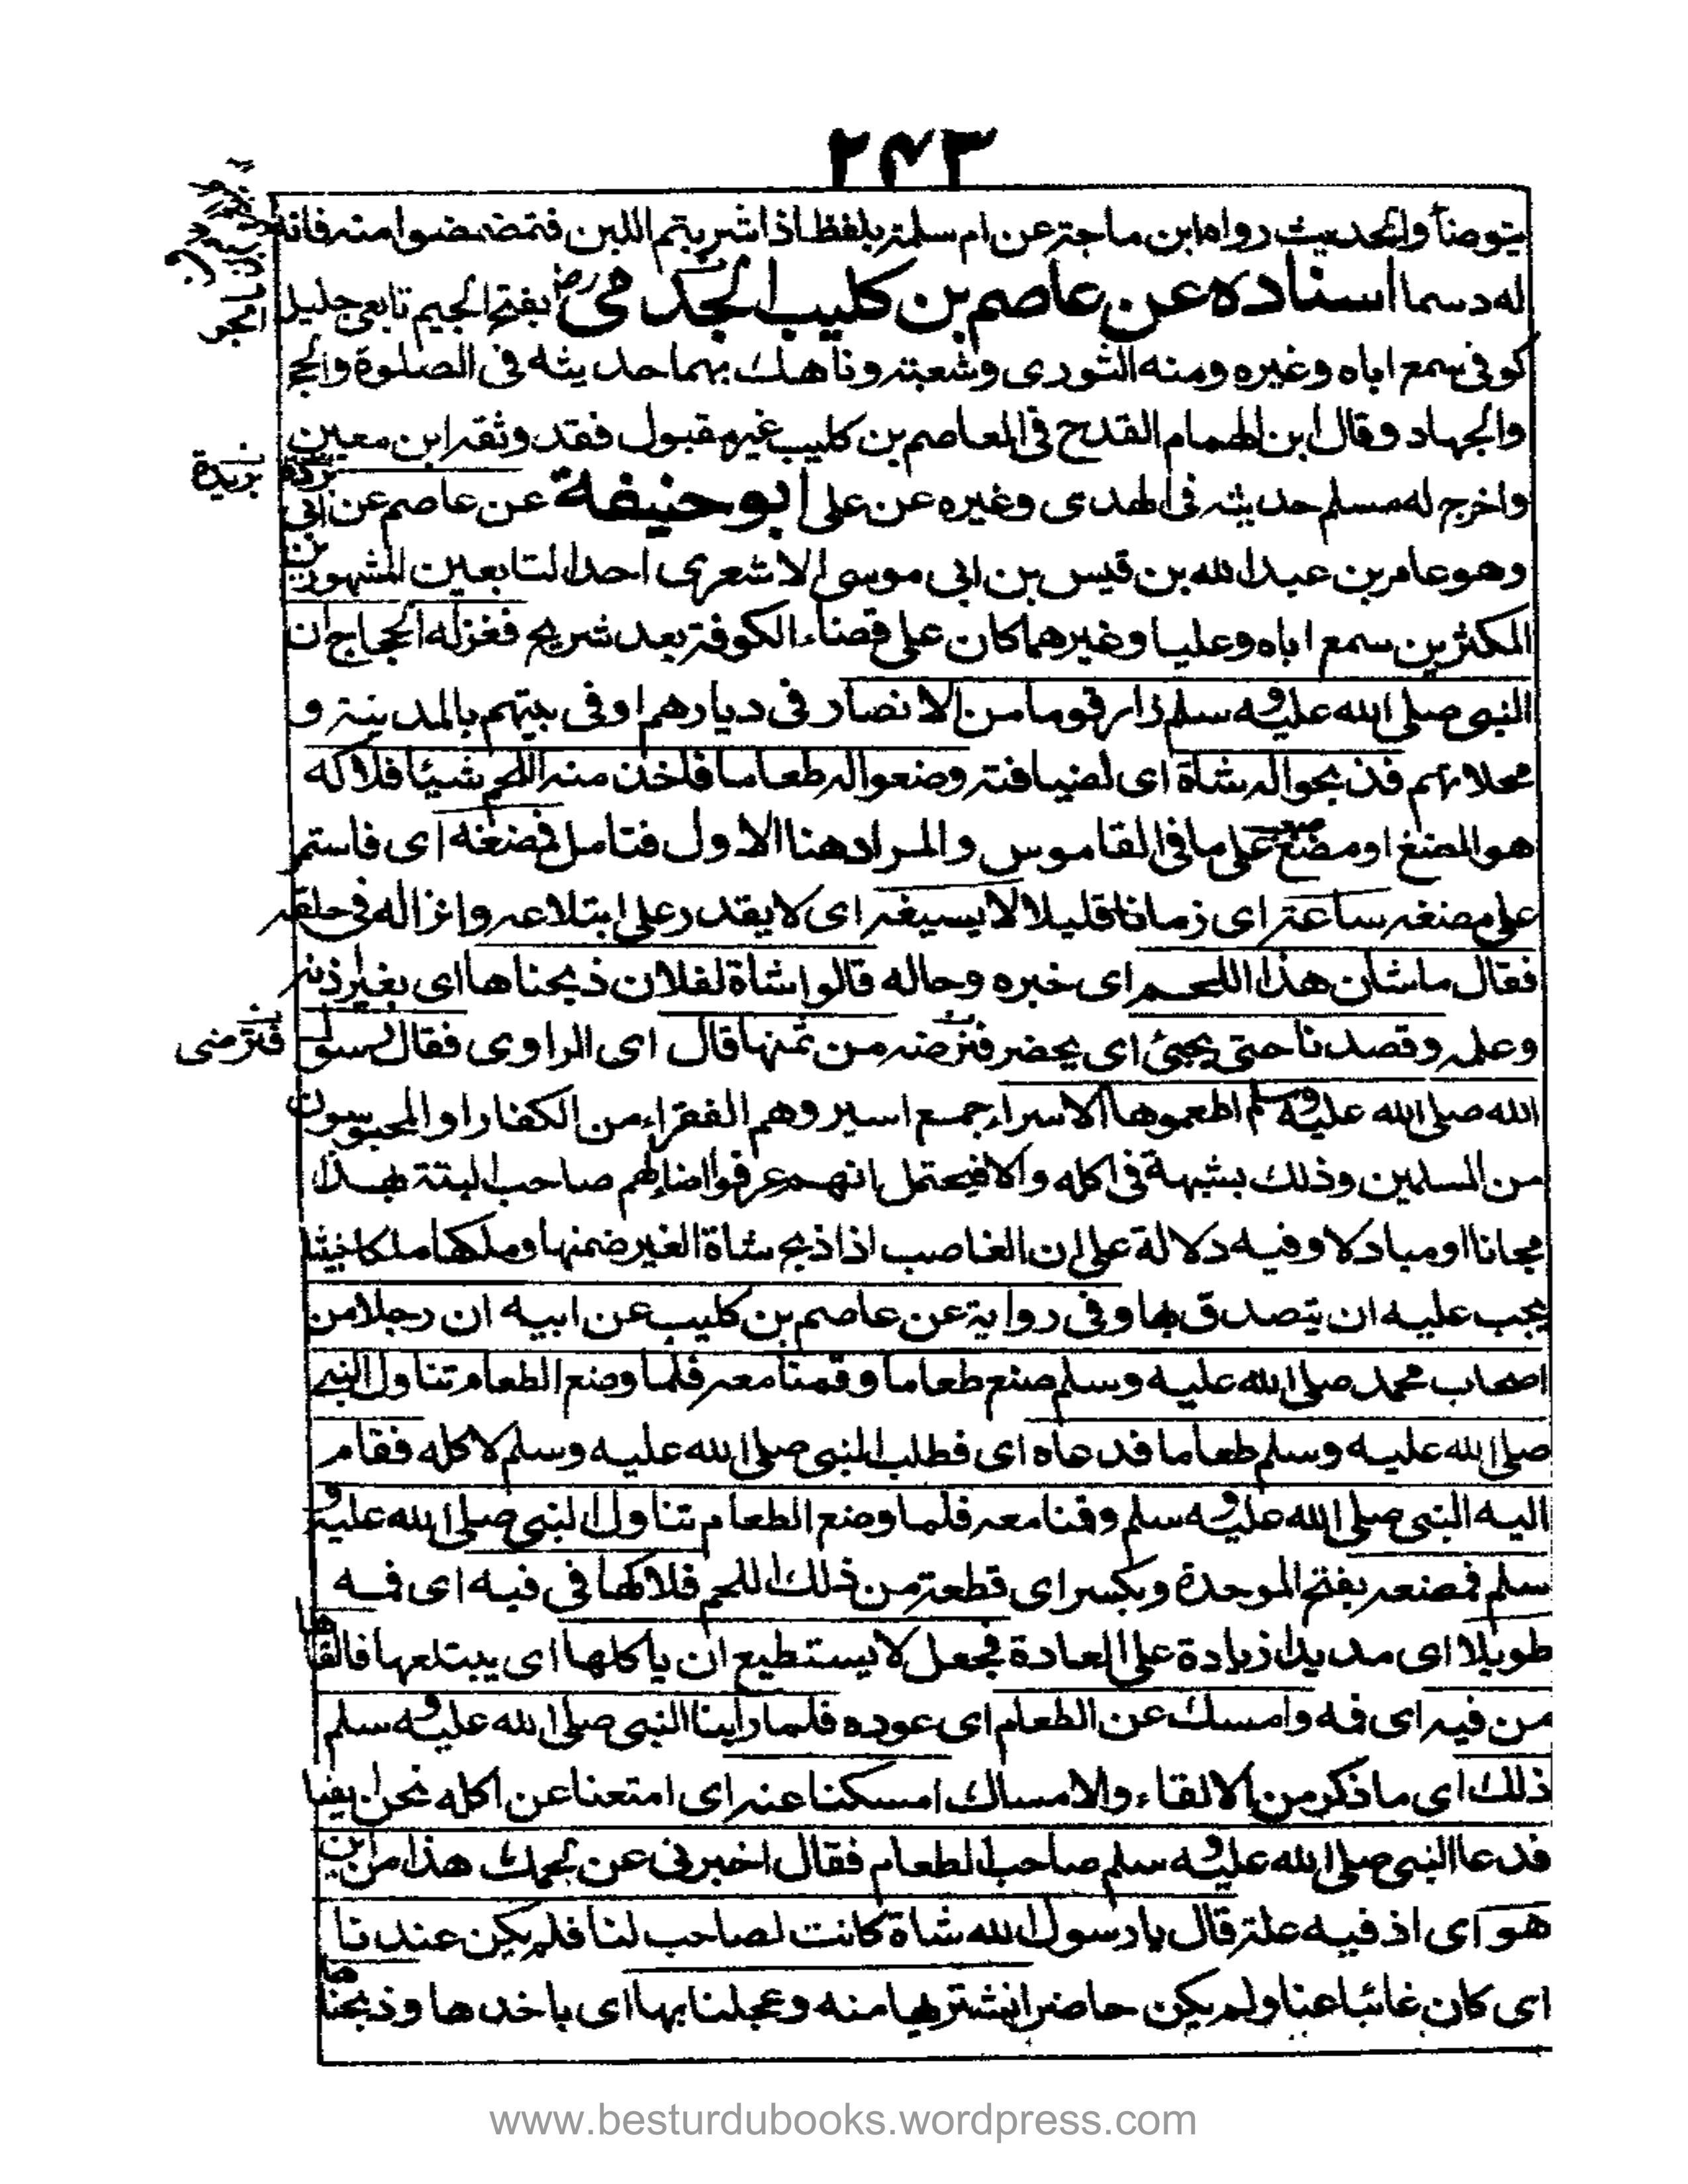 ٢٤٣
يتوضأ والحديث رواه ابن ماجة عن ام سلمة بلفظ اذا شربتم اللبن فتمضمضوا منه فانه
له دسما اسناده عن عاصم بن كليب الجَرمى رض بفتح الجيم تابعى جليل
كوفى سمع اباه وغيره ومنه الثورى وشعبة وناهك بهما حديثه فى الصلوة والحج
والجهاد وقال ابن الهمام القدح فى العاصم بن كليب غير مقبول فقد وثقه ابن معين
واخرج له مسلم حديثه فى الهدى وغيره عن على ابو حنيفة عن عاصم عن ابى بردة
بريدة
وهو عامر بن عبد الله بن قيس بن ابى موسى الاشعرى احد التابعين المشهورين
المكثرين سمع اباه وعليا وغيرهما كان على قضاء الكوفة بعد شريح فعزله الحجاج ان
النبى صلى الله عليه وسلم زار قوما من الانصار فى ديارهم او فى بيتهم بالمدينة و
محلاتهم فذبحوا له شاة اى لضيافته وضعوا له طعاما فاخذ منه اللحم شيئا فلاكه
هو المضغ او مضغ على ما فى القاموس والمراد هنا الاول فتامل فمضغه اى فاستمر
على مضغه ساعة اى زمانا قليلا لا يسيغه اى لا يقدر على ابتلاعه وانزاله فى حلقه
فقال ما شان هذا اللحم اى خبره وحاله قالوا شاة لفلان ذبحناها اى بغير اذنه
وعلمه وقصدنا حتى يجئ اى يحضر فنرضه من ثمنها قال اى الراوى فقال رسول
فنرضى
الله صلى الله عليه وسلم اطعموها الاسراء جمع اسير وهم الفقراء من الكفار او المحبوسون
من المسلمين وذلك بشبهة فى اكله والا فيحتمل انهم عرفوا رضاء لهم صاحب البتة بهذا
مجانا او مبادلا وفيه دلالة على ان الغاصب اذا ذبح شاة الغير ضمنها وملكها ملكا خبيثا
يجب عليه ان يتصدق بها وفى رواية عن عاصم بن كليب عن ابيه ان رجلا من
اصحاب محمد صلى الله عليه وسلم صنع طعاما وقمنا معه فلما وضع الطعام تناول النبى
صلى الله عليه وسلم طعاما فدعاه اى فطلب النبى صلى الله عليه وسلم لاكله فقام
اليه النبى صلى الله عليه وسلم وقمنا معه فلما وضع الطعام تناول النبى صلى الله عليه و
سلم بضعة بفتح الموحدة وبكسر اى قطعة من ذلك اللحم فلاكها فى فيه اى فمه
طويلا اى مديدا زيادة على العادة فجعل لا يستطيع ان ياكلها اى يبتلعها فالقاها
من فيه اى فمه وامسك عن الطعام اى عوده فلما راينا النبى صلى الله عليه وسلم
ذلك اى ما ذكر من الالقاء والامساك امسكنا عنه اى امتعنا عن اكله نحن ايضا
فدعا النبى صلى الله عليه وسلم صاحب الطعام فقال اخبرنى عن لحمك هذا من اين
هو اى اذ فيه علة قال يا رسول الله شاة كانت لصاحب لنا فلم يكن عندنا
اى كان غائبا عنا ولم يكن حاضرا نشتريها منه وعجلنا بها اى باخدها وذبحناها
www.besturdubooks.wordpress.com